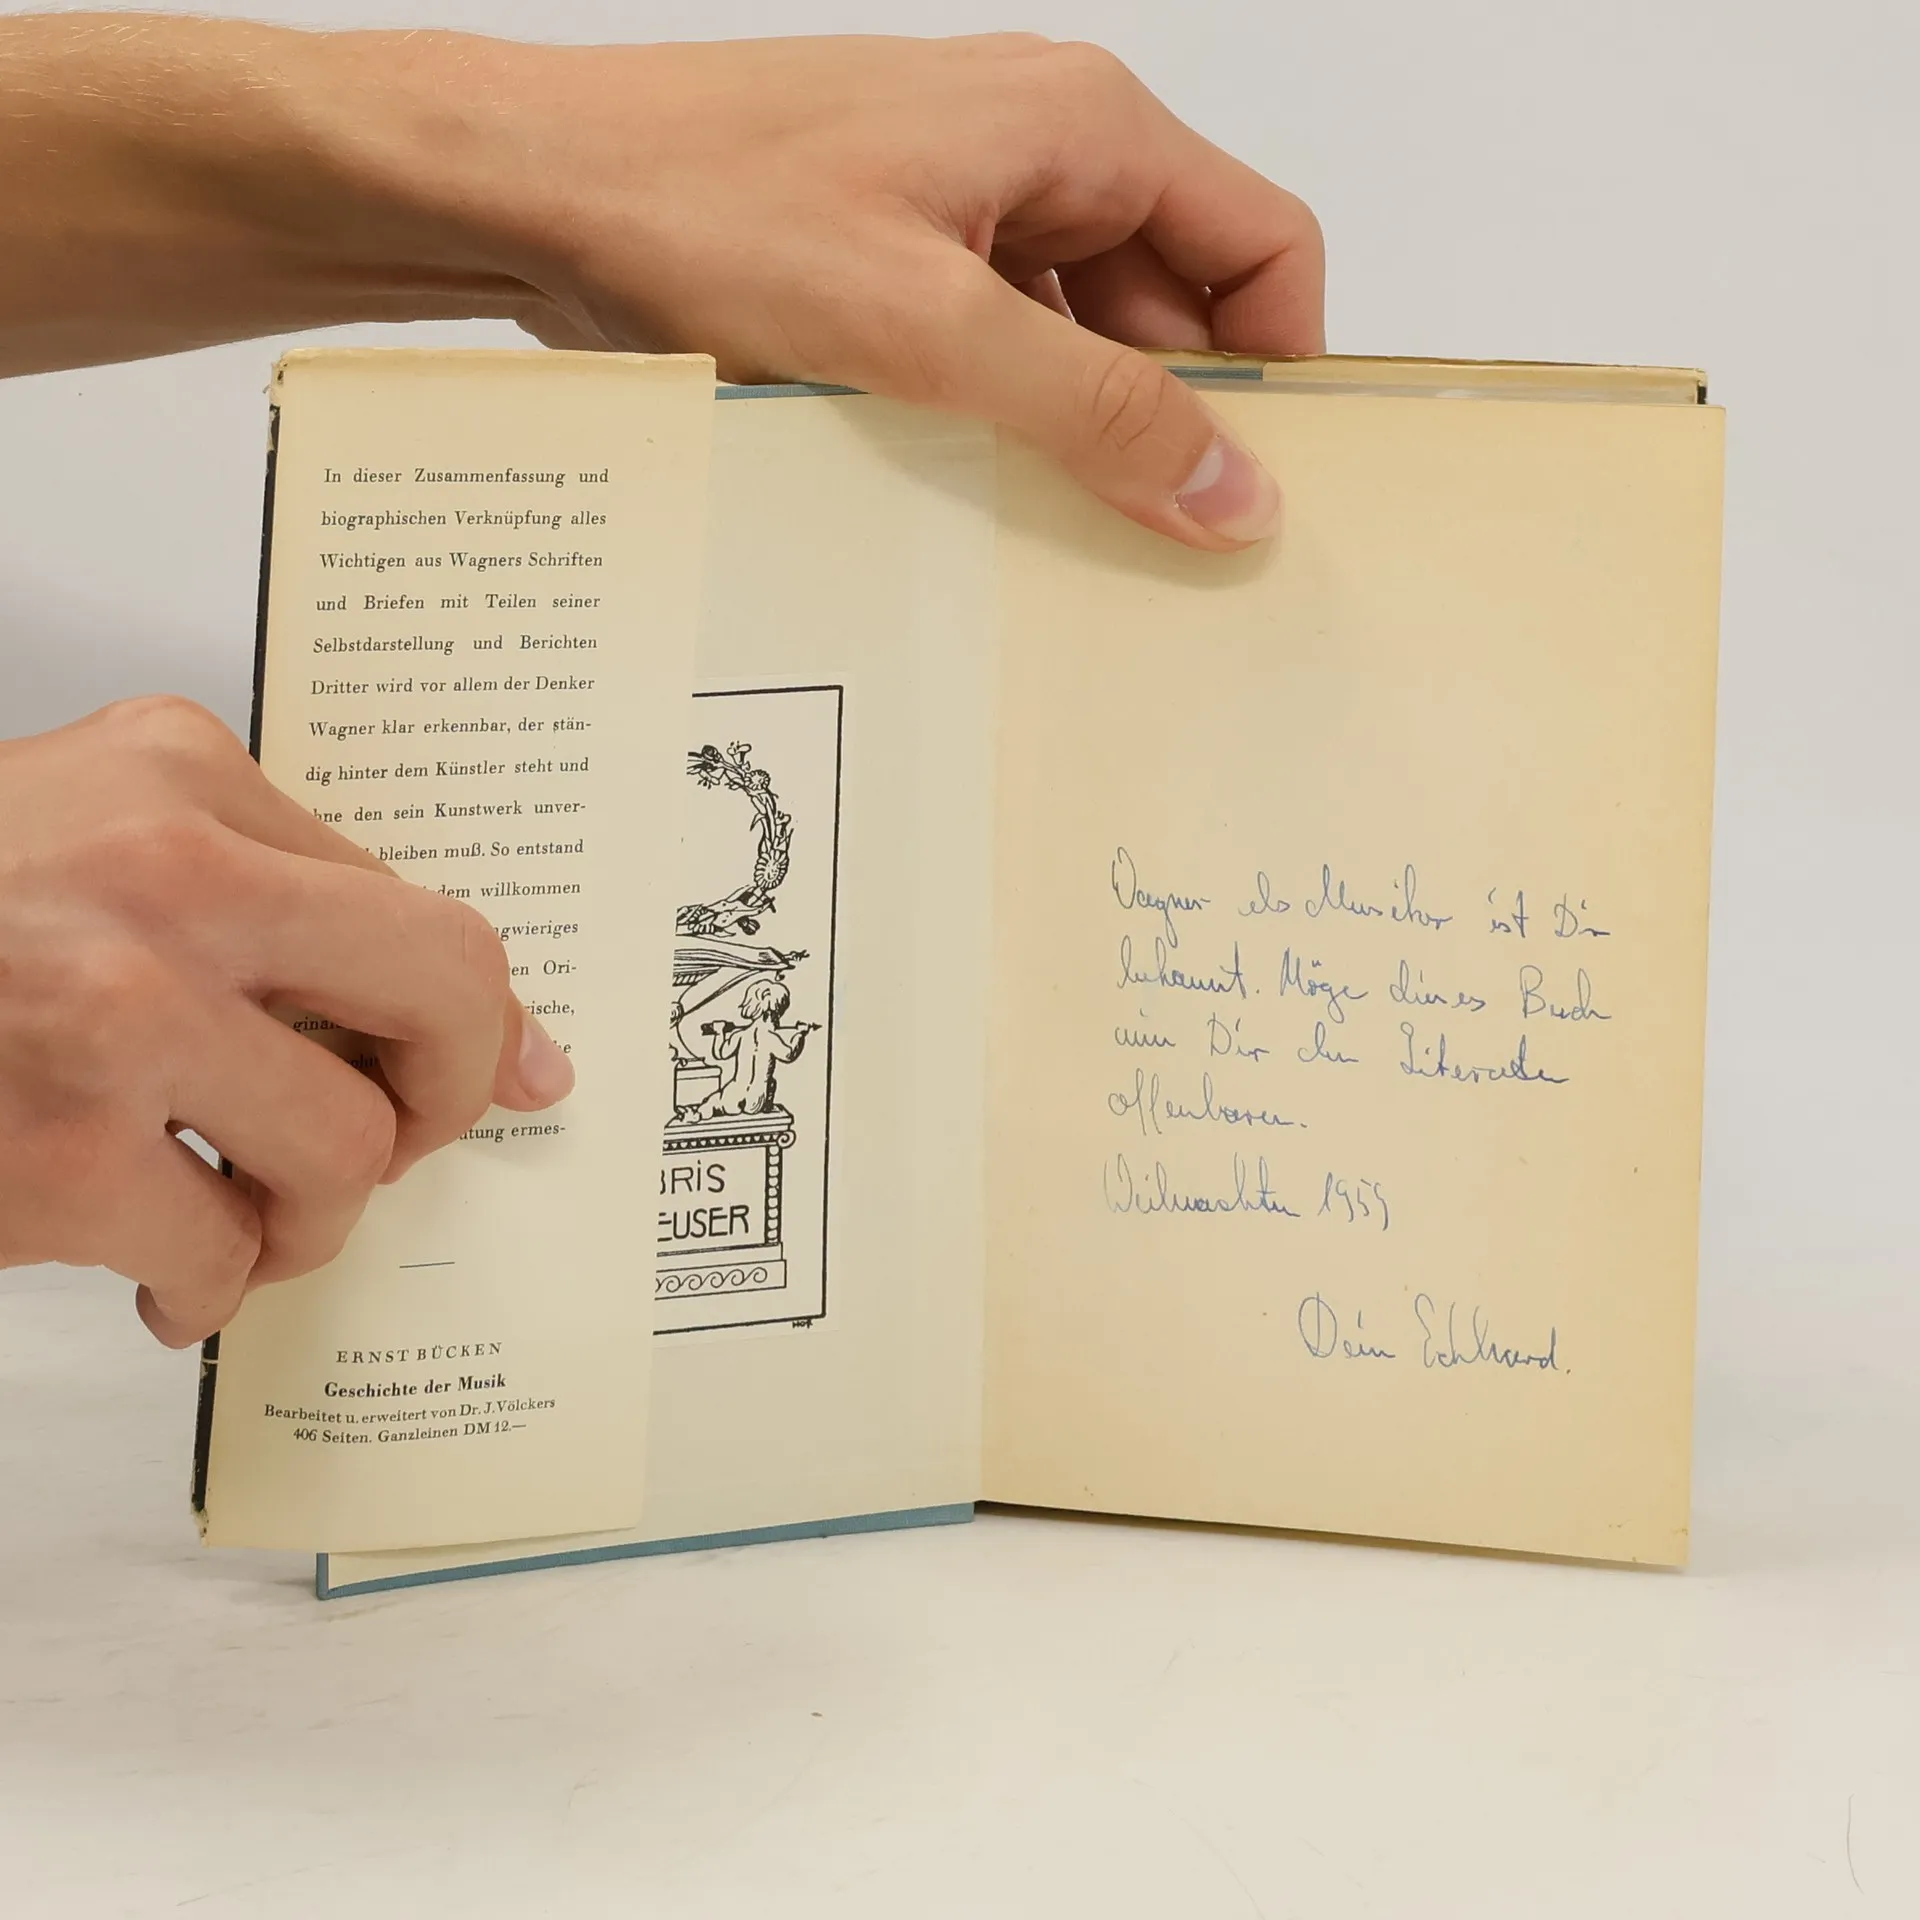 In dieser Zusammenfassung und
biographischen Verknüpfung alles
Wichtigen aus Wagners Schriften
und Briefen mit Teilen seiner
Selbstdarstellung und Berichten
Dritter wird vor allem der Denker
Wagner klar erkennbar, der stän-
dig hinter dem Künstler steht und
den sein Kunstwerk unver-
bleiben muß. So entstand
dem willkommen
ngwieriges
en Ori-
rische,
atung ermes-
ERNST BÜCKEN
Geschichte der Musik
Bearbeitet u. erweitert von Dr. J. Völckers
406 Seiten. Ganzleinen DM 12.—
BRIS
EUSER
Wagner als Musiker ist Dir
bekannt. Möge dieses Buch
nun Dir den Literaten
offenbaren.
Weihnachten 1959
Dein Eckhard.